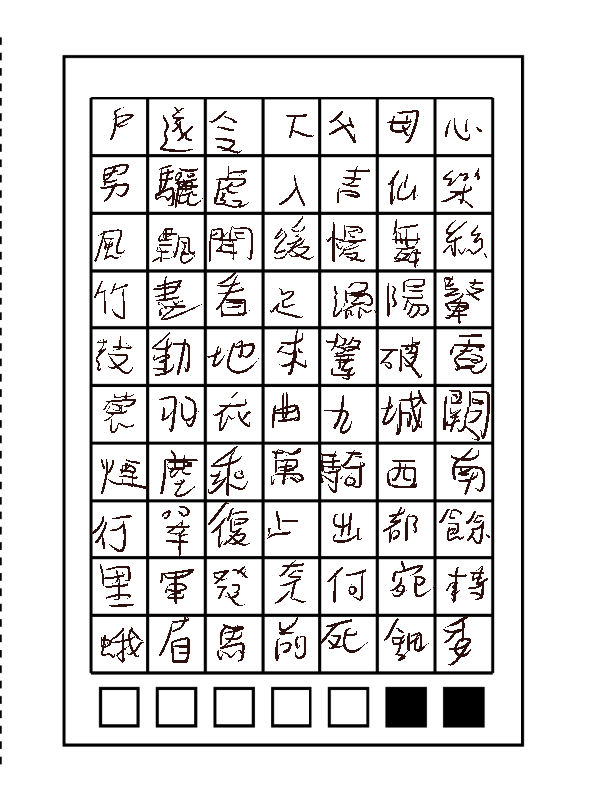 戶遂令下父母心
男驪處入青仙樂
風飄聞緩慢舞絲
竹盡看足漁陽鼙
鼓動地來驚破霓
裳羽衣曲九城闕
煙塵乘萬騎西南
行翠復止出都餘
里軍發奈何宛轉
蛾眉馬前死鈿委